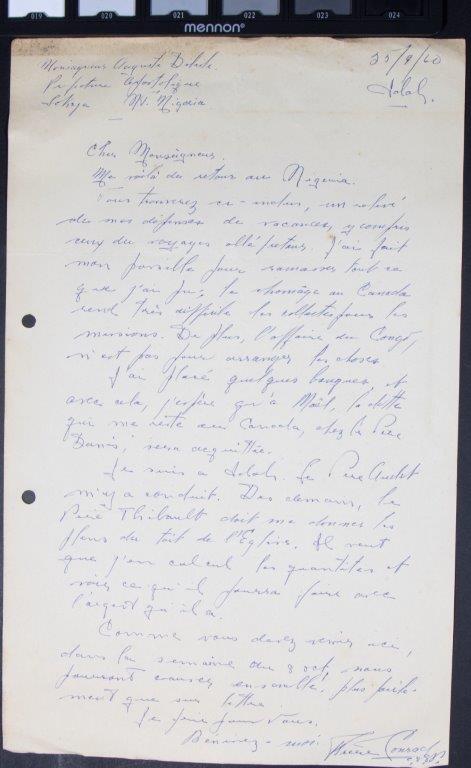 019 020 021 022 023 024
mennon
25/9/60
Monseigneur Auguste Delisle
Prefecture Apostolique
Lokoja N. Nigeria
Idah.
Cher Monseigneur,
Me voilà de retour au Nigeria.
Vous trouverez ci-inclus, un relevé
de mes dépenses de vacances, y compris
ceux du voyages allé retour. J'ai fait
mon possible pour ramasser tout ce
que j'ai pu, le chomâge au Canada
rend très difficile les collectes pour les
missions. De plus, l'affaire du Congo,
n'est pas pour arranger les choses
J'ai placé quelques banques et
avec cela, j'espère qu'à Noël, la dette
qui me reste au Canada, chez le Père
sera acquittée.
Je suis à Idah. Le Père Audet
m'y a conduit. Des demain, le
Père Thibault doit me donner les
plans du toit de l'Eglise. Il veut
que j'en calcul les quantités et
voir ce qu'il pourra faire avec
l'argent qu'il a.
Comme vous devez venir ici,
dans la semaine du 8 oct, nous
pourront causer ensemble, plus facile-
ment que sur lettre.
Je prie pour vous.
Bénissez-moi
Frère Conrad